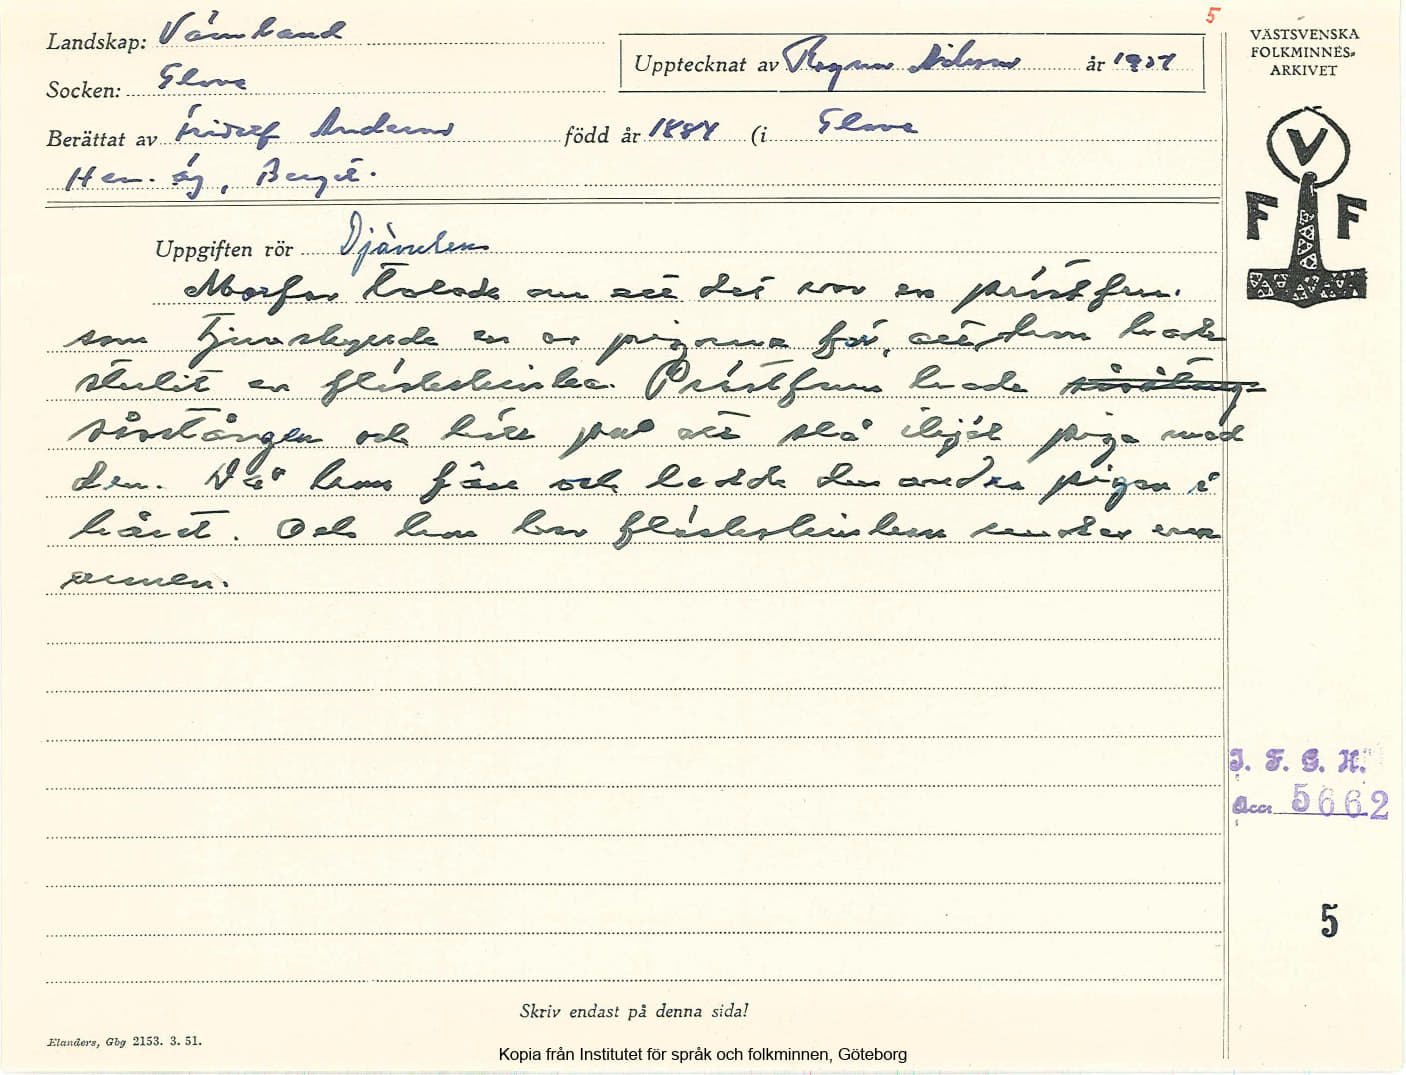 5
Landskap: Värmland
Socken: Glava
Upptecknat av Ragnar Nilsson år 1957
VÄSTSVENSKA
FOLKMINNES-
ARKIVET
Berättat av Fridolf Anderson född år 1884 (i Glava
Hem. äg, Berget.
V
F F
Uppgiften rör Djävulen
Morfar talade om att det var en prästfru
som tjuvskyllde en av pigorna för, att hon hade
stulit en fläskskinka. Prästfrun hade
såstången och höll på att slå ihjäl piga med
den. Då kom fan och ledde den andra pigan i
håret. Och hon bar fläskskinkan under ena
armen.
I. F. G. H.
Acc. 5662
5
Skriv endast på denna sida!
Elanders, Gbg 2153. 3. 51.
Kopia från Institutet för språk och folkminnen, Göteborg